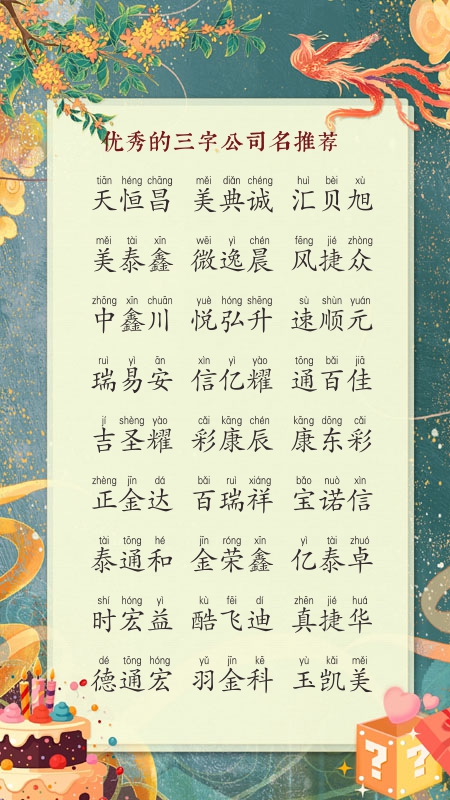 优秀的三字公司名推荐
tiān héng chāng měi diǎn chéng huì bèi xù
天恒昌 美典诚 汇贝旭
měi tài xīn wēi yì chén fēng jié zhòng
美泰鑫 微逸晨 风捷众
zhōng xīn chuān yuè hóng shēng sù shùn yuán
中鑫川 悦弘升 速顺元
ruì yì ān xìn yì yào tōng bǎi jiā
瑞易安 信亿耀 通百佳
jí shèng yào cǎi kāng chén kāng dōng cǎi
吉圣耀 彩康辰 康东彩
zhèng jīn dá bǎi ruì xiáng bǎo nuò xìn
正金达 百瑞祥 宝诺信
tài tōng hé jīn róng xīn yì tài zhuó
泰通和 金荣鑫 亿泰卓
shí hóng yì kù fēi dí zhēn jié huá
时宏益 酷飞迪 真捷华
dé tōng hóng yǔ jīn kē yù kǎi měi
德通宏 羽金科 玉凯美
? ?